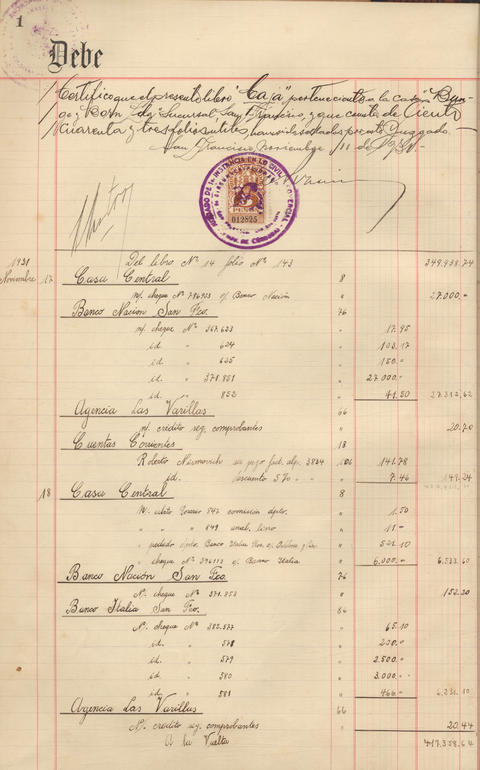 1
Debe
Certifico que el presente libro "Caja" perteneciente a la casa "Bun-
ge y Born Ldq" Sucursal San Francisco, y que consta de Ciento
Cuarenta y tres folios útiles, han sido sellados por este Juzgado.
San Francisco, noviembre 11 de 1931.-
JUZGADO DE 1a INSTANCIA EN LO CIVIL Y COMERCIAL
PROV. DE CÓRDOBA
012825
1931 Del libro Nº 14 folio Nº 143 349.938.74
Noviembre 17 Casa Central 8
n/. cheque Nº 796903 c/. Banco Nación " 27.000.-
Banco Nación San Fco. 76
n/. cheque Nº 367.633 " 17.95
id. " 634 " 103.17
id. " 635 " 150.-
id. " 371.851 " 27.000.-
id. " 852 " 41.50 27.312.62
Agencia Las Varillas 66
n/. crédito seg. comprobantes " 20.70
Cuentas Corrientes 18
Roberto su pago fact. alp. 3824 106 141.78
id. descuento 5% " " 7.46 149.24
18 Casa Central 8
N/. 842 comisión dpto. " 1.50
" " " 849 " 11.-
" pedido dpto. Banco Italia " 521.10
" cheque Nº c/. Banco Italia " 6.000.- 6.533.60
Banco Nación San Fco. 76
N/. cheque Nº 371.853 " 152.30
Banco Italia San Fco. 86
N/. cheque Nº 382.577 " 65.10
id. " 578 " 200.-
id. " 579 " 2.500.-
id. " 580 " 3.000.-
id. " 581 " 466.- 6.231.10
Agencia Las Varillas 66
N/. crédito seg. comprobantes " 20.44
A la Vuelta 417.358.64